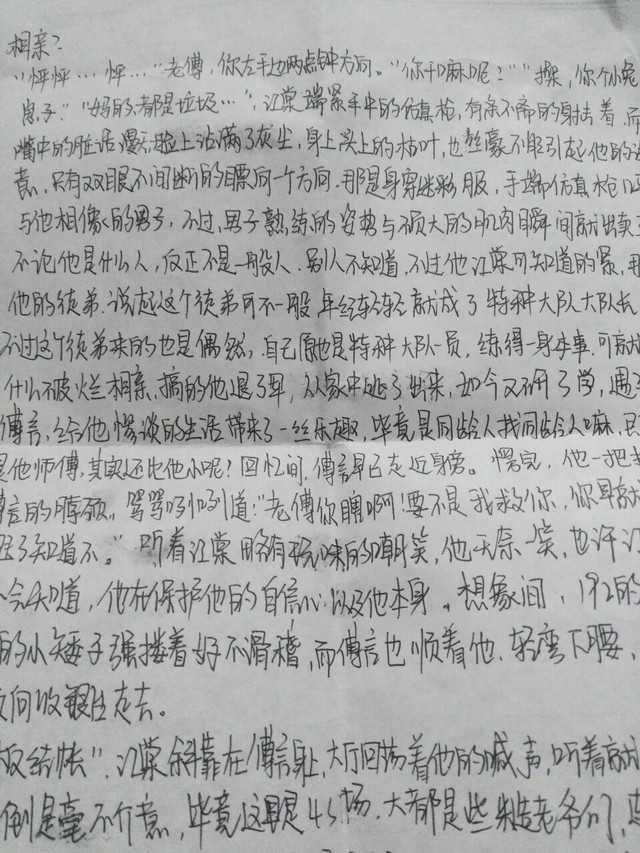 相亲？
“怦怦…怦…”“老傅，你左手边两点钟方向。”“你干嘛呢？”“操，你个小兔
崽子。”“妈的，都是垃圾…”，江棠端紧手中的仿真枪，有条不紊的射击着，而
嘴中的脏话漫天，脸上沾满了灰尘，身上头上的枯叶，也丝毫不能引起他的注
意，只有双眼不间断的瞟向一个方向。那是身穿迷彩服，手端仿真枪
与他相像的男子，不过，男子熟练的姿势与硕大的肌肉瞬间就出卖
不论他是什么人，反正不是一般人。别人不知道，不过他江棠可知道的紧，那
他的徒弟。说起这个徒弟可不一般，年纪轻轻就成了特种大队大队长
不过这个徒弟来的也是偶然，自己原也是特种大队一员，练得一身本事，可就
什么破烂相亲，搞的他退了伍，从家中逃了出来，如今又开了学，遇
傅言，给他惨淡的生活带来了一丝乐趣，毕竟是同龄人找同龄人嘛，
是他师傅，其实还比他小呢！回忆间，傅言早已走近身旁。愣完，他一把
言的脖颈，骂骂咧咧到道：“老傅你瞎啊！要不是我救你，你早就
了知道不。”听着江棠略有玩味的嘲笑，他无奈一笑，也许江
不会知道，他在保护他的自信心以及他本身。想象间，192的
的小矮子强搂着好不滑稽，而傅言也顺着他，轻弯下腰，
向收银台走去。
板结帐”，江棠斜靠在傅言身上，大厅回荡着他的喊声，听着
倒是毫不介意，毕竟这里是4S场，大都是些糙老爷们，